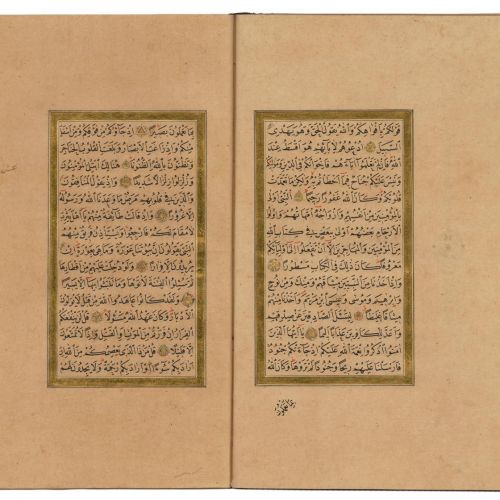 قولكم بافواهكم والله يقول الحق وهو يهدى
السبيل ادعوهم لابائهم هو اقسط عند
الله فان لم تعلموا اباءهم فاخوانكم فى الدين ومواليكم
وليس عليكم جناح فيما اخطأتم به ولكن ما تعمدت
قلوبكم وكان الله غفورا رحيما النبى اولى
بالمؤمنين من انفسهم وازواجه امهاتهم واولوا
الارحام بعضهم اولى ببعض فى كتاب الله
من المؤمنين والمهاجرين الا ان تفعلوا الى اوليائكم
معروفا كان ذلك فى الكتاب مسطورا و
اذ اخذنا من النبيين ميثاقهم ومنك ومن نوح
وابراهيم وموسى وعيسى ابن مريم واخذنا منهم
ميثاقا غليظا ليسئل الصادقين عن صدقهم
واعد للكافرين عذابا اليما يا ايها الذين
امنوا اذكروا نعمة الله عليكم اذ جاءتكم جنود
فارسلنا عليهم ريحا وجنودا لم تروها وكان الله
بما تعملون
بما تعملون بصيرا اذ جاؤكم من فوقكم ومن اسفل
منكم واذ زاغت الابصار وبلغت القلوب الحناجر
وتظنون بالله الظنونا هنالك ابتلى المؤمنون
وزلزلوا زلزالا شديدا واذ يقول المنافقون
والذين فى قلوبهم مرض ما وعدنا الله ورسوله
الا غرورا واذ قالت طائفة منهم يا اهل يثرب
لا مقام لكم فارجعوا ويستأذن فريق منهم
النبى يقولون ان بيوتنا عورة وما هى بعورة ان
يريدون الا فرارا ولو دخلت عليهم من اقطارها
ثم سئلوا الفتنة لاتوها وما تلبثوا بها الا يسيرا
ولقد كانوا عاهدوا الله من قبل لا يولون
الادبار وكان عهد الله مسئولا قل لن ينفعكم
الفرار ان فررتم من الموت او القتل واذا لا تمتعون
الا قليلا قل من ذا الذى يعصمكم من الله ان
اراد بكم سوءا او اراد بكم رحمة ولا يجدون لهم